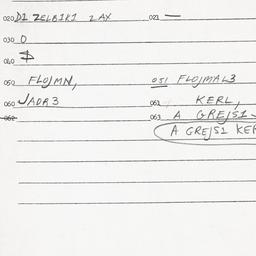 020 DI ZELBIKI ZAX 021 —
030 O
040 $
050 FLOJMN, 051 FLOJMAL3
060 JADR3 061 KERL,
062 063 A GREJS1-
A GREJS1 KER